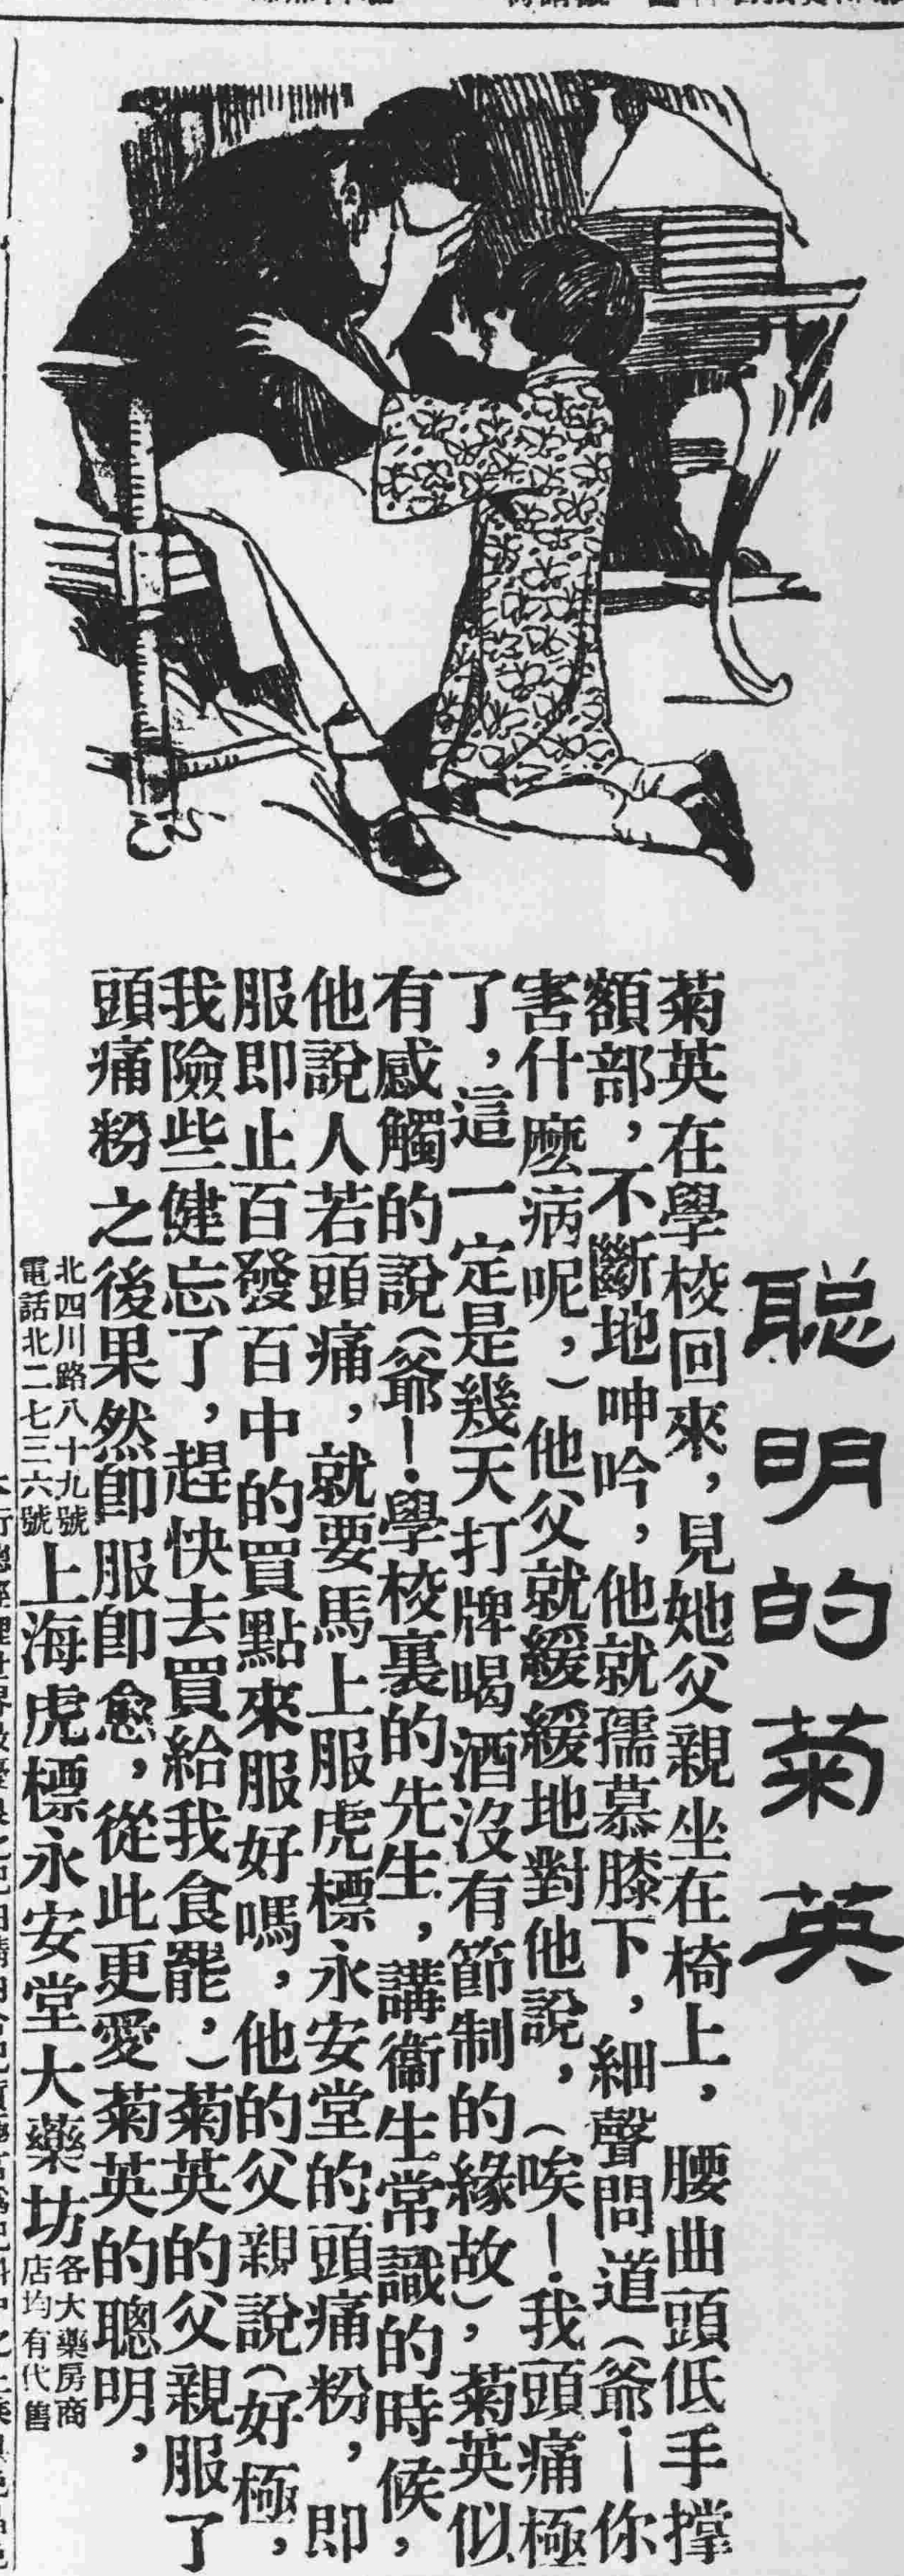 聪明的菊英
菊英在學校回來，見她父親坐在椅上，腰曲頭低手撑
額部，不斷地呻吟，他就孺慕膝下，細聲問道（爺！你
害什麽病呢，）他父就緩緩地對他說，（唉！我頭痛極
了，這一定是幾天打牌喝酒沒有節制的緣故），菊英似
有感觸的說（爺！學校裏的先生，講衞生常識的時候，
他說人若頭痛，就要馬上服虎標永安堂的頭痛粉，即
服即止百發百中的買點來服好嗎，他的父親說（好極，
我險些健忘了，趕快去買給我食罷，）菊英的父親服了
頭痛粉之後果然卽服卽愈，從此更愛菊英的聰明，
北四川路八十九號
電話北二七三六號
上海虎標永安堂大藥坊
各大藥房商
店均有代售